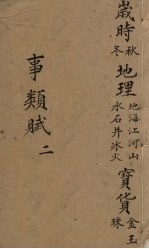 歲時 秋冬 地理 地海江河山水石井冰火 寶貨 金玉珠
事類賦 二